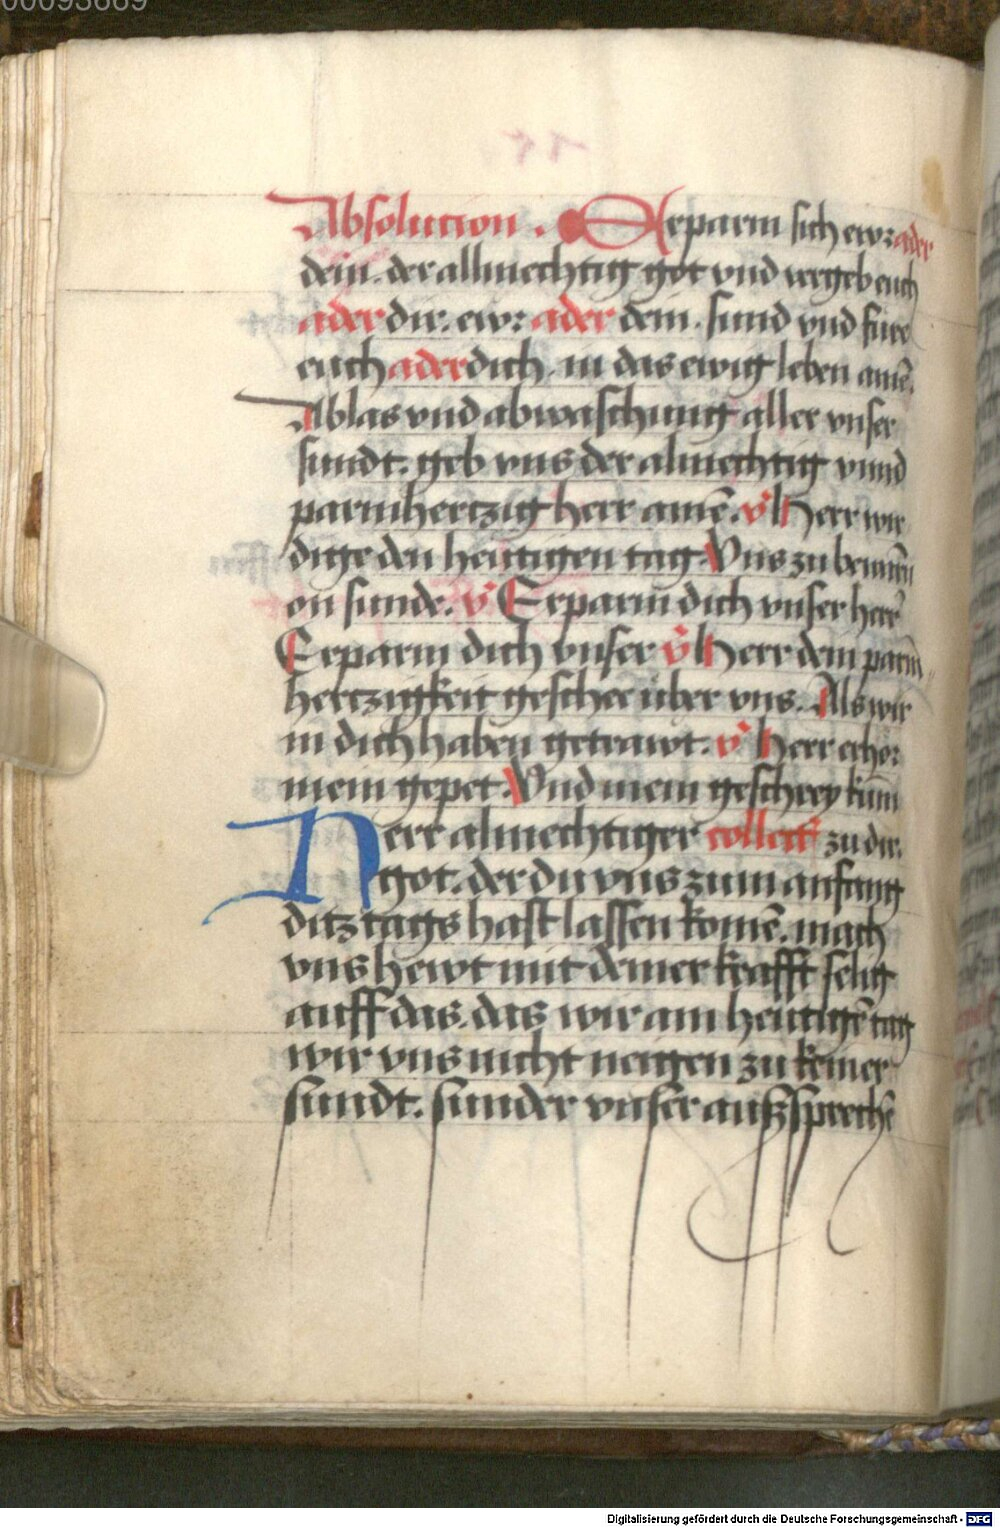 00093669
Absolucion . Erparm sich ewr ader
dein . der allmechtig got vnd vergeb euch
ader dir . ewr ader dein . sund vnd füre
euch ader dich . in das ewig leben amē .
Ablas vnd abwaschung aller vnser
sundt . geb vns der almechtig vnnd
parmhertzig herr amē . v̇ Herr wir
dige den heutigen tag . Vns zu bewarn
on sunde . v̇ Erparm dich vnser herr
Erparm dich vnser v̇ Herr dein parm
hertzigkeit geschee über vns . Als wir
in dich haben getrawt . v̇ Herr erhor
mein gepet . Vnd mein geschrey kum
Herr almechtiger collect zu dir
got . der du vns zum anfang
ditz tags hast lassen komē . mach
vns hewt mit deiner krafft selig
auff das . das wir am heutigē tag
wir vns nicht neigen zu keiner
sundt . sunder vnser ausssprechē
Digitalisierung gefördert durch die Deutsche Forschungsgemeinschaft - DFG